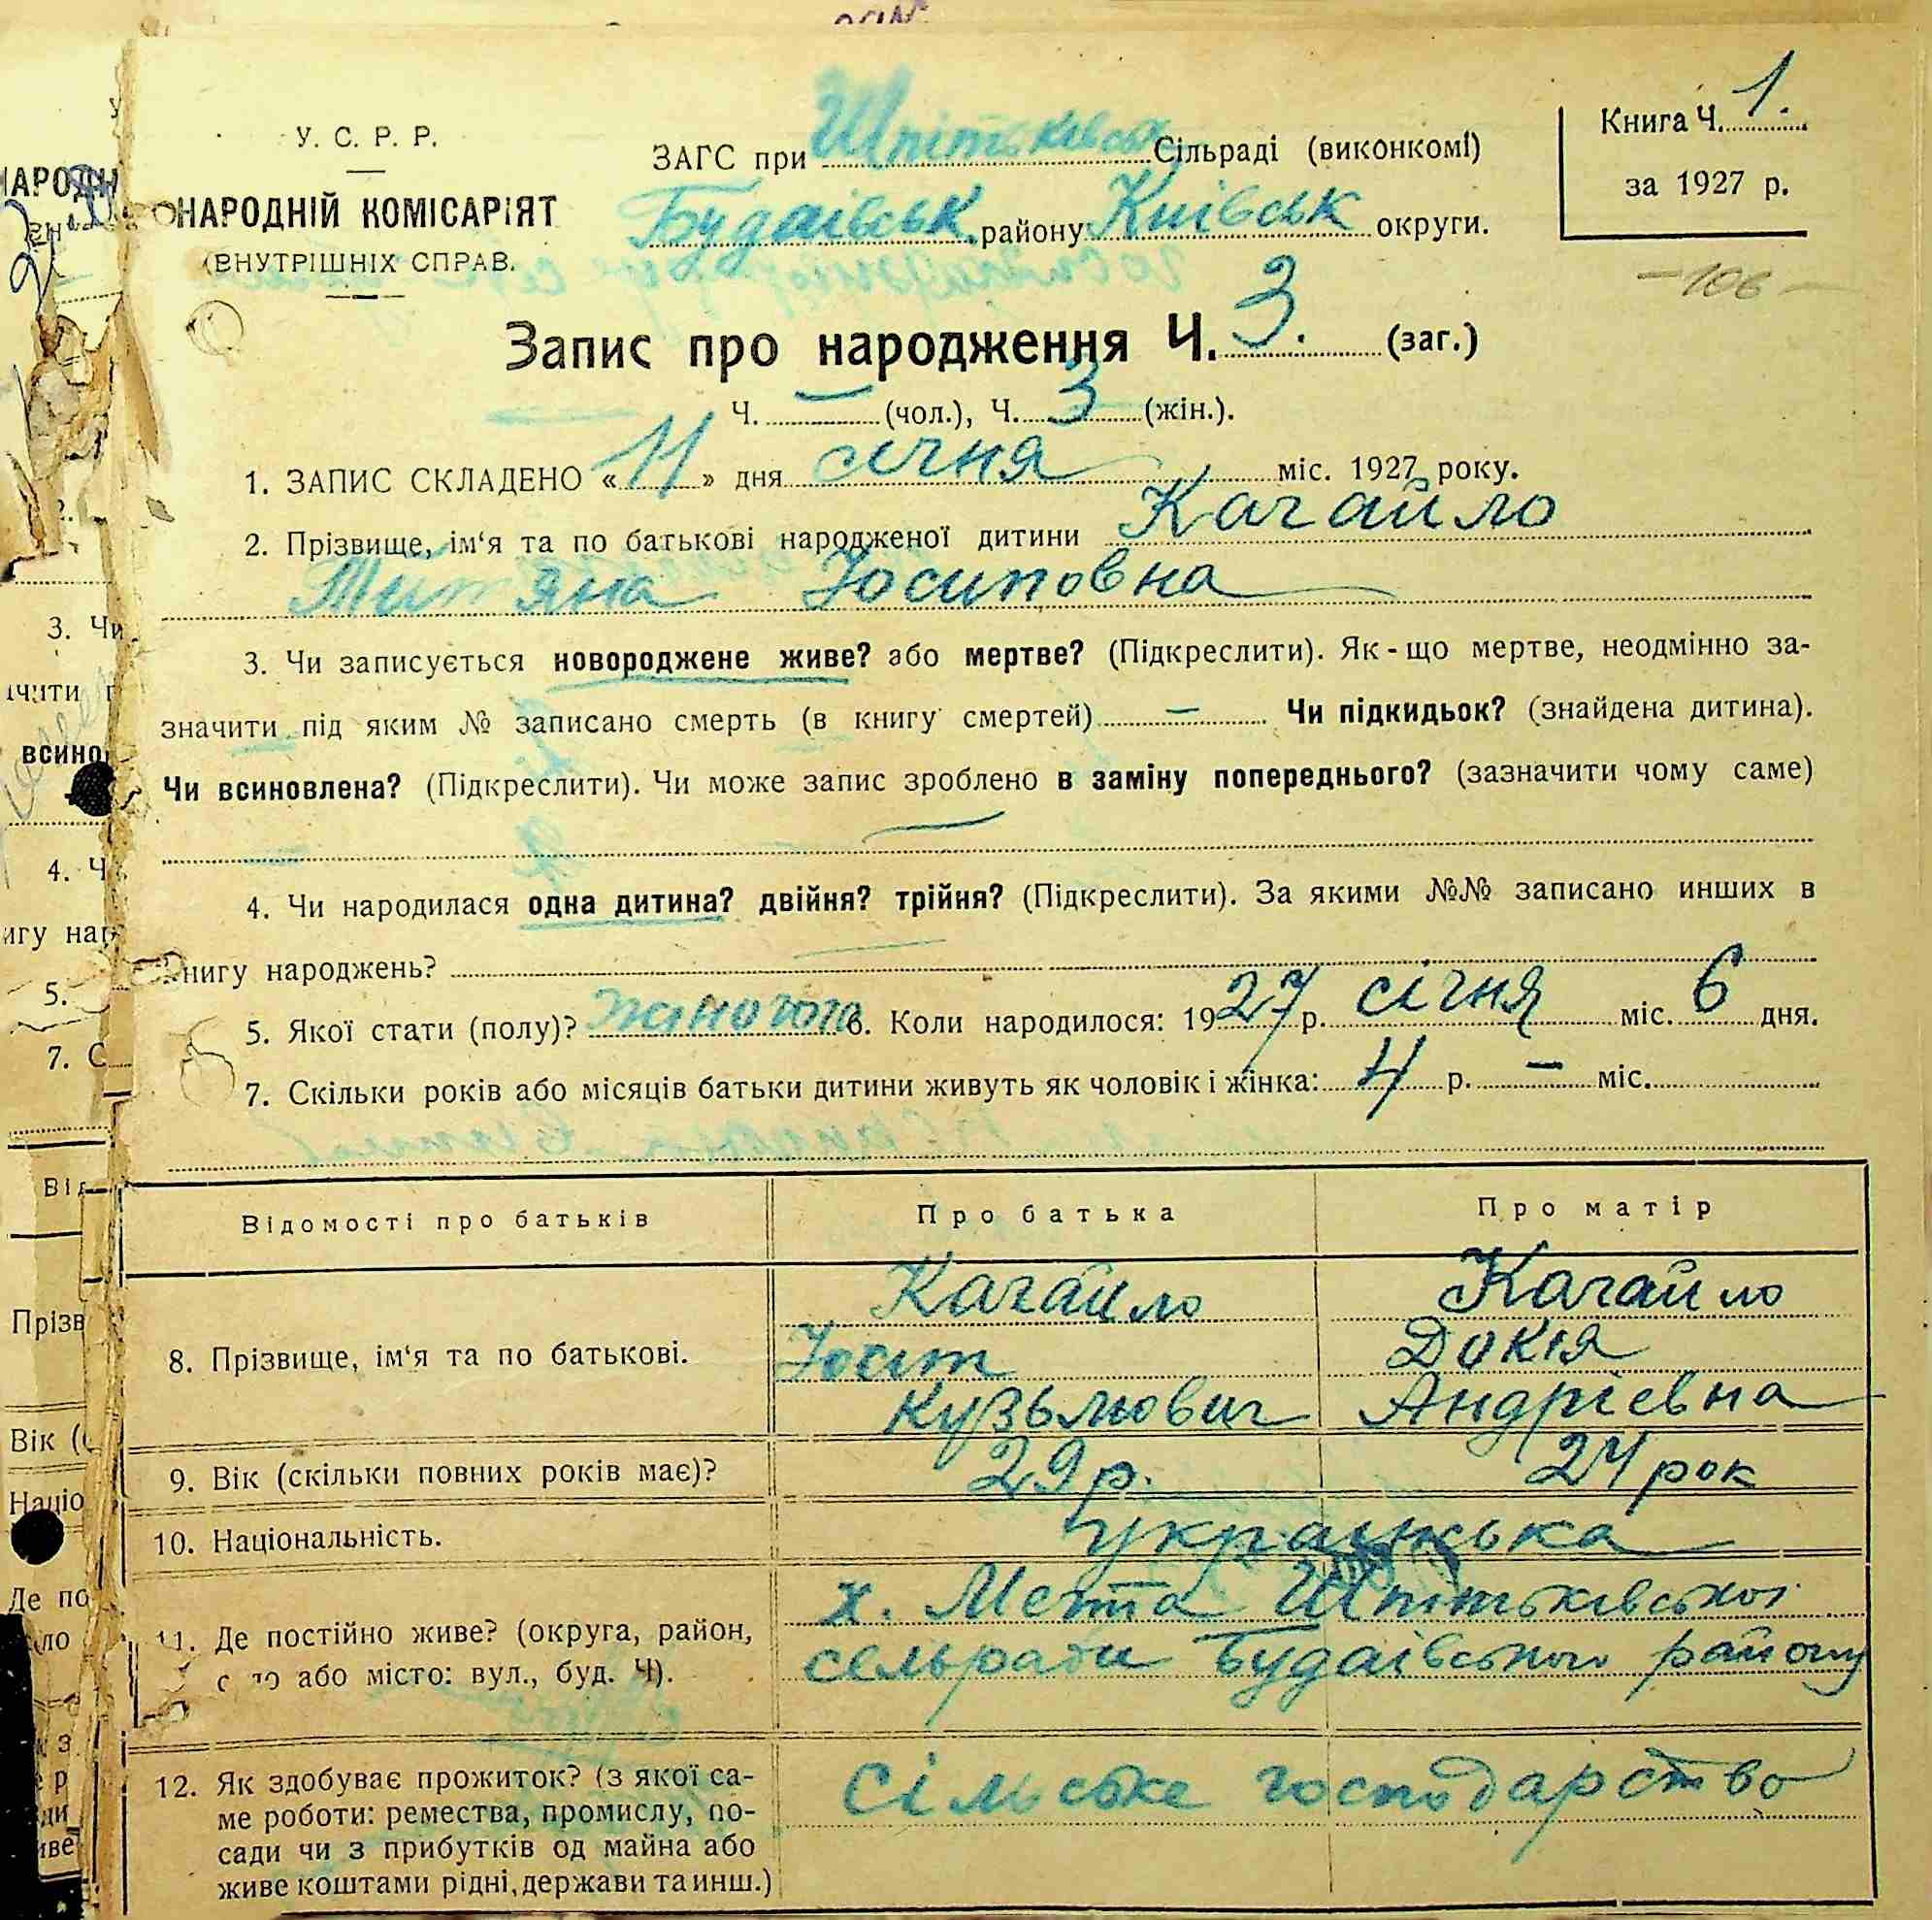 У. С. Р. Р.
НАРОДНІЙ КОМІСАРІЯТ
ВНУТРІШНІХ СПРАВ.
ЗАГС при Шпітьківськ Сільраді (виконкомі)
Будаівськ району Київськ округи.
Книга Ч. 1.
за 1927 р.
— 106 —
Запис про народження Ч. 3. (заг.)
Ч. — (чол.), Ч. 3 (жін.).
1. ЗАПИС СКЛАДЕНО «11» дня січня міс. 1927 року.
2. Прізвище, ім‘я та по батькові народженої дитини Качайло
Титяна Йосиповна
3. Чи записується новороджене живе? або мертве? (Підкреслити). Як-що мертве, неодмінно за-
значити під яким № записано смерть (в книгу смертей) — Чи підкидьок? (знайдена дитина).
Чи всиновлена? (Підкреслити). Чи може запис зроблено в заміну попереднього? (зазначити чому саме)
—
4. Чи народилася одна дитина? двійня? трійня? (Підкреслити). За якими №№ записано инших в
книгу народжень?
5. Якої стати (полу)? жіночого 6. Коли народилося: 1927 р. січня міс. 6 дня.
7. Скільки років або місяців батьки дитини живуть як чоловік і жінка: 4 р. — міс.
Відомості про батьків Про батька Про матір
8. Прізвище, ім‘я та по батькові. Качайло Качайло
Йосип Докія
Кузьмович Андрієвна
9. Вік (скільки повних років має)? 29 р. 24 рок
10. Національність. українська
11. Де постійно живе? (округа, район, х. Мєтта Шпітьківської
село або місто: вул., буд. Ч). сельради Будаівського району
12. Як здобуває прожиток? (з якої са- Сільське господарство
ме роботи: ремества, промислу, по-
сади чи з прибутків од майна або
живе коштами рідні, держави та инш.)